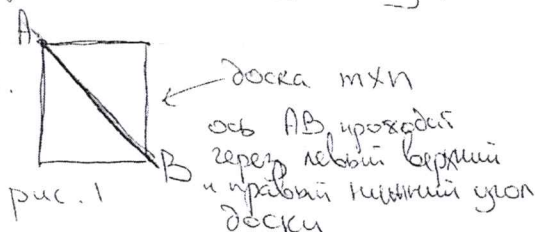 A
доска mxn
ось AB проходит
через левый верхний
B и правый нижний угол
рис. 1
доски